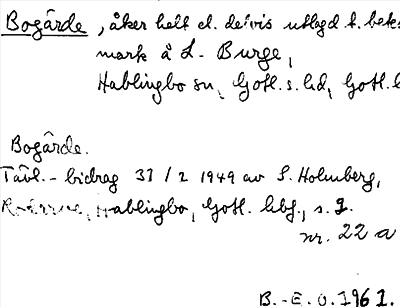 Bogårde, åker helt el. delvis utlagd t. bete
mark å L. Burge,
Hablingbo sn, Gotl. s. hd, Gotl. l
Bogårde.
Tävl.-bidrag 31/2 1949 av S. Holmberg,
Hablingbo, Gotl. lbf., s. 1.
nr. 22 a
B.-E. O. 1961.